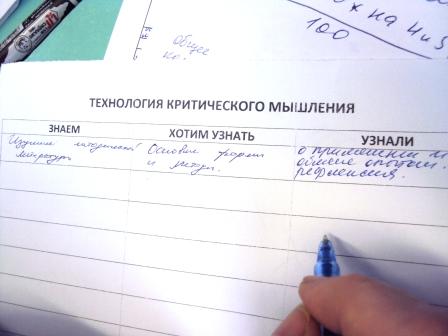 х на 4 и 5
100
общее
ко.
ТЕХНОЛОГИЯ КРИТИЧЕСКОГО МЫШЛЕНИЯ
ЗНАЕМ ХОТИМ УЗНАТЬ УЗНАЛИ
Изучили методическую литературу
Основные формы
и методы.
о применении и
обмене опытом.
рефлексия.